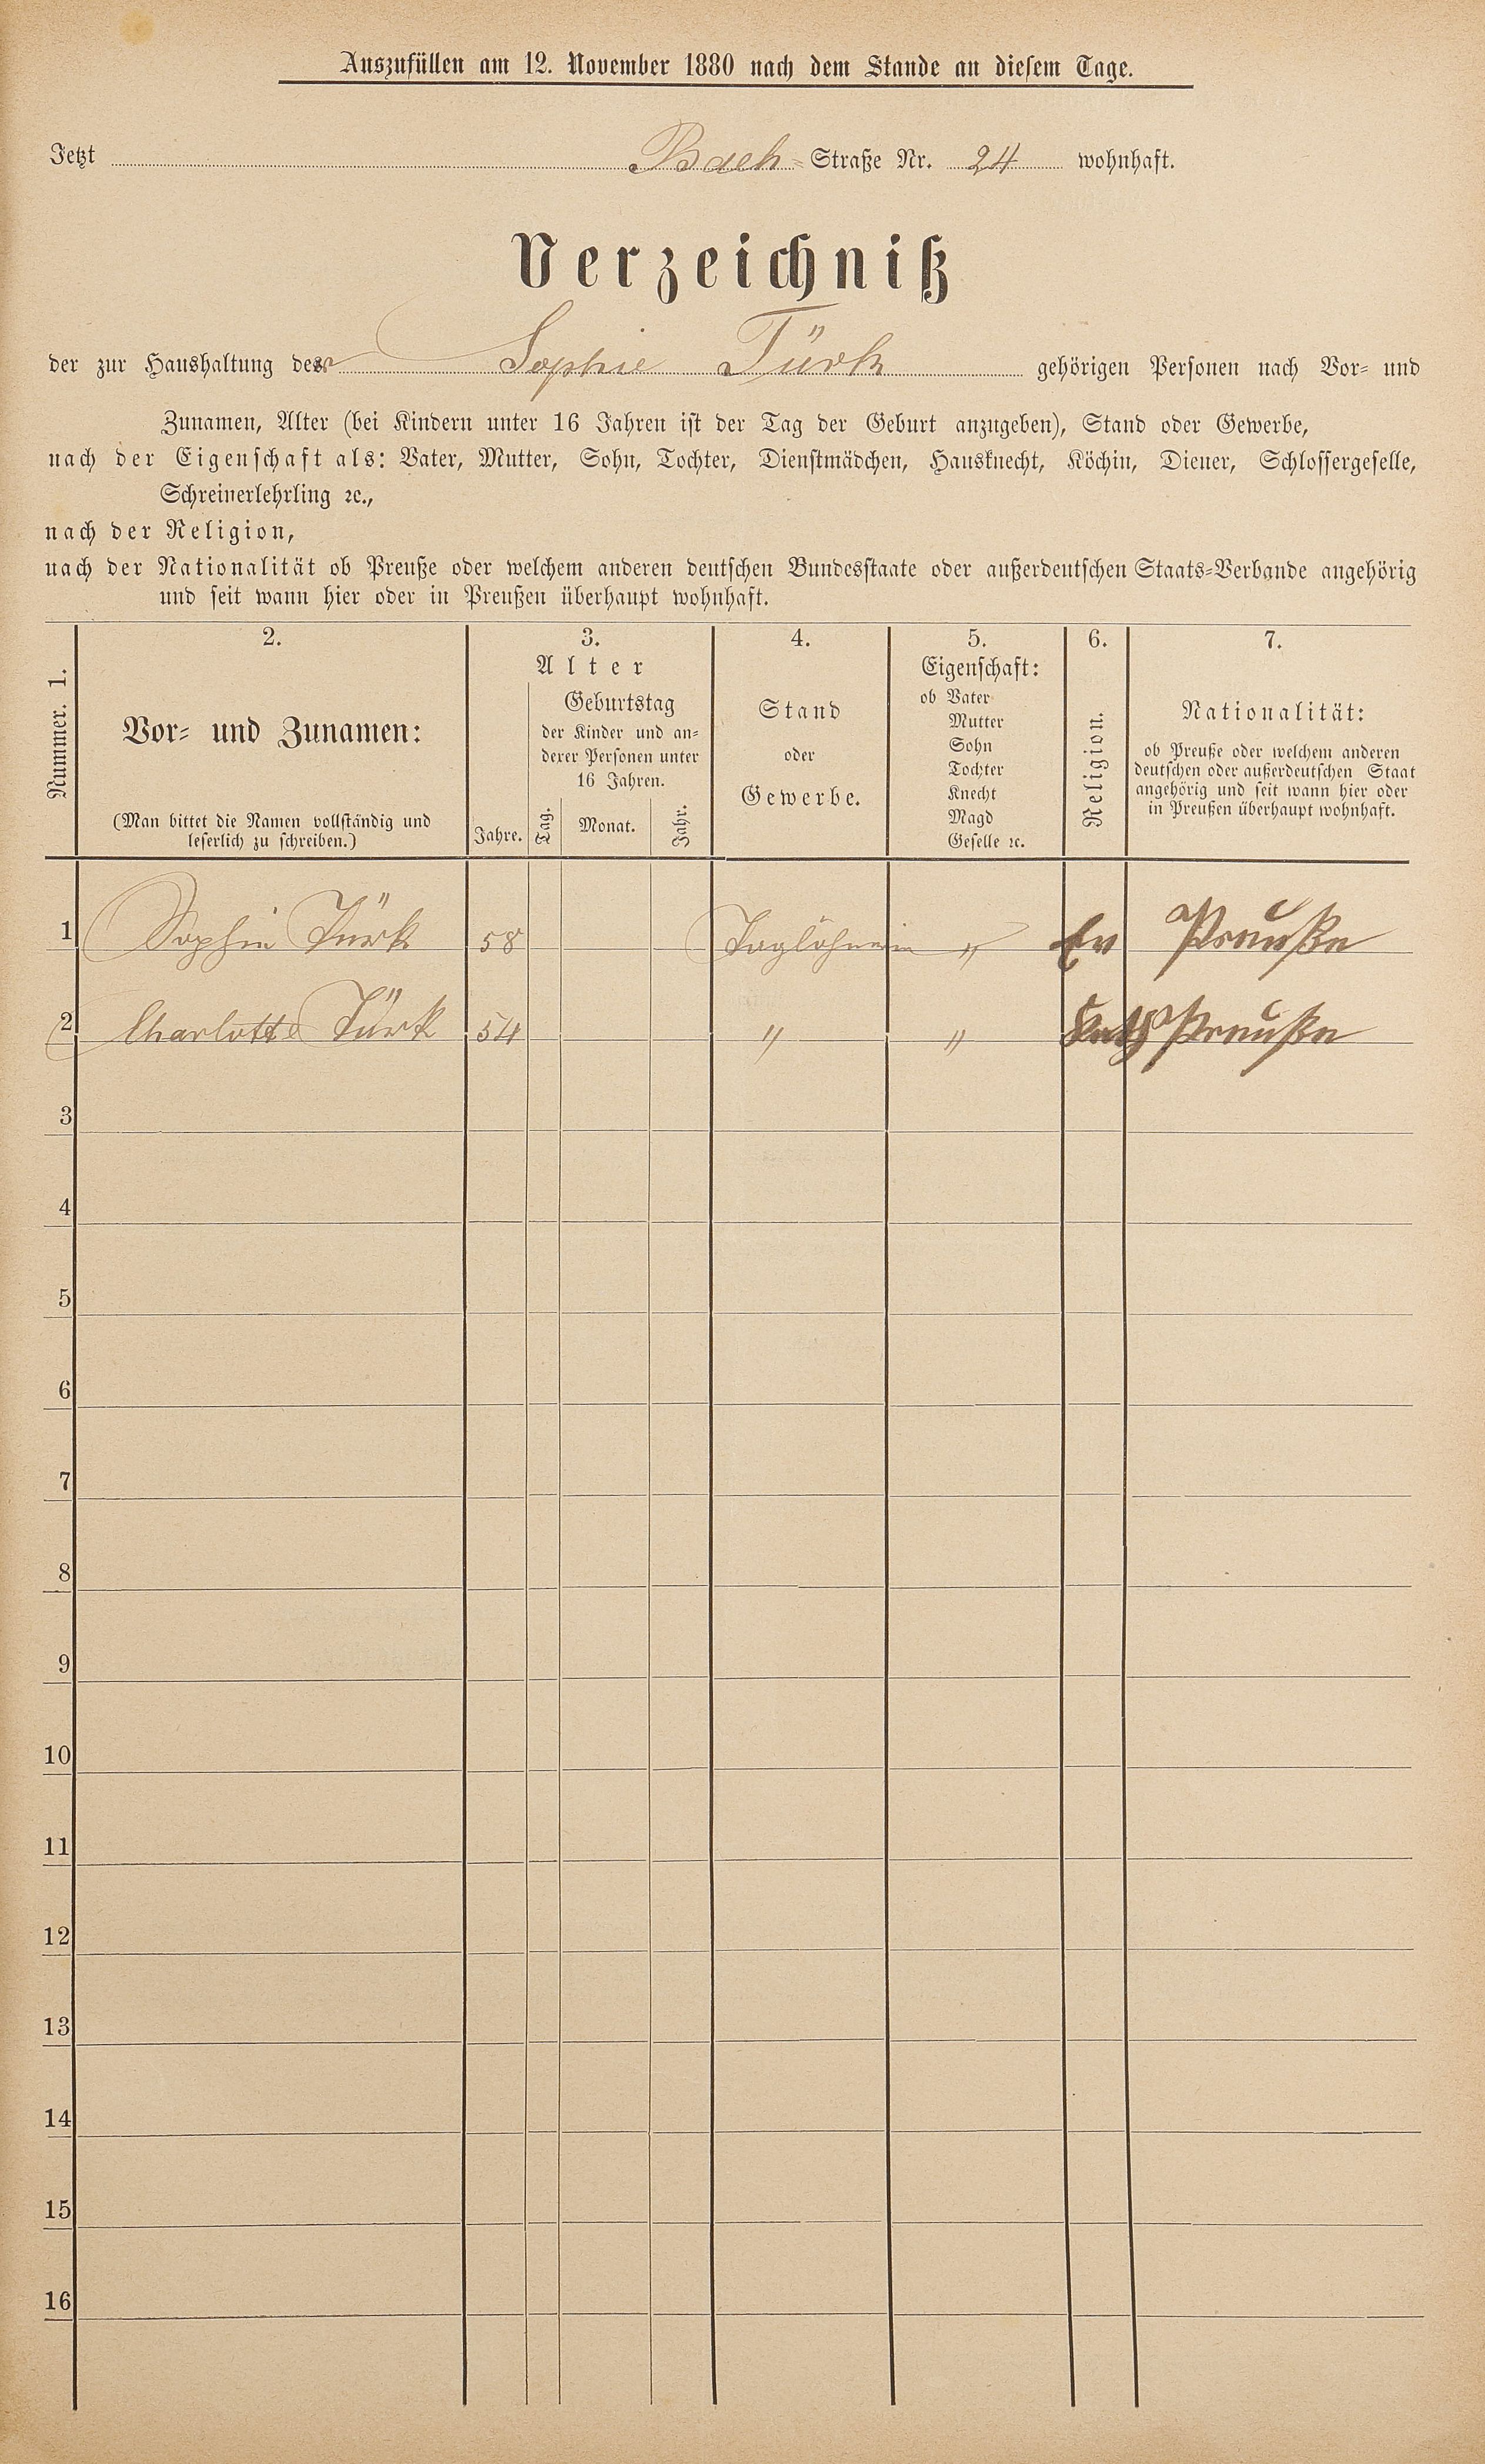 Auszufüllen am 12. November 1880 nach dem Stande an diesem Tage.
Jetzt Bach-Straße Nr. 24 wohnhaft.
Verzeichniß
der zur Haushaltung der Sophie Türk gehörigen Personen nach Vor- und
Zunamen, Alter (bei Kindern unter 16 Jahren ist der Tag der Geburt anzugeben), Stand oder Gewerbe,
nach der Eigenschaft als: Vater, Mutter, Sohn, Tochter, Dienstmädchen, Hausknecht, Köchin, Diener, Schlossergeselle,
Schreinerlehrling ꝛc.,
nach der Religion,
nach der Nationalität ob Preuße oder welchem anderen deutschen Bundesstaate oder außerdeutschen Staats-Verbande angehörig
und seit wann hier oder in Preußen überhaupt wohnhaft.
Nummer. 1.
2.
Vor- und Zunamen:
(Man bittet die Namen vollständig und
leserlich zu schreiben.)
3.
Alter
Jahre.
Geburtstag
der Kinder und an-
derer Personen unter
16 Jahren.
Tag. Monat. Jahr.
4.
Stand
oder
Gewerbe.
5.
Eigenschaft:
ob Vater
Mutter
Sohn
Tochter
Knecht
Magd
Geselle ꝛc.
6.
Religion.
7.
Nationalität:
ob Preuße oder welchem anderen
deutschen oder außerdeutschen Staat
angehörig und seit wann hier oder
in Preußen überhaupt wohnhaft.
1 Sophie Türk 58 Taglöhnerin " Ev Preuße
2 Charlotte Türk 54 " " Kath Preuße
3
4
5
6
7
8
9
10
11
12
13
14
15
16